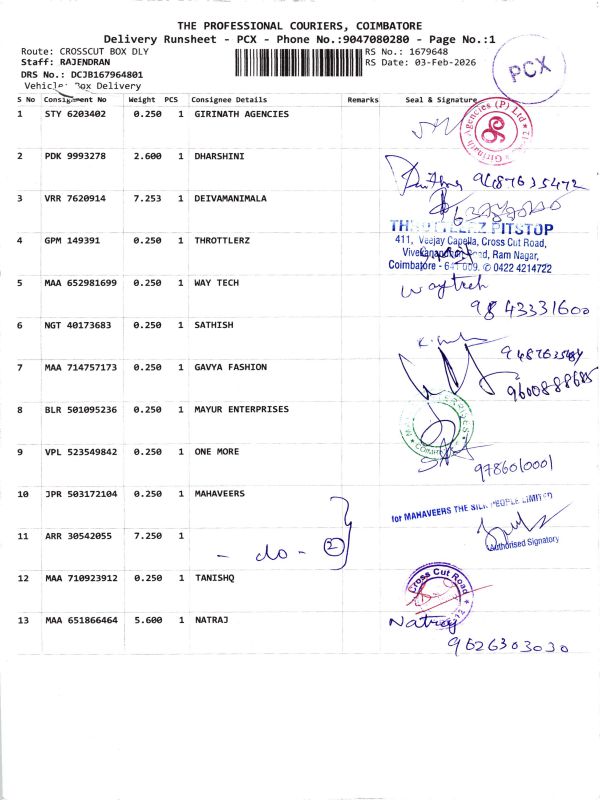 THE PROFESSIONAL COURIERS, COIMBATORE
Delivery Runsheet - PCX - Phone No.:9047080280 - Page No.:1
Route: CROSSCUT BOX DLY
RS No.: 1679648
Staff: RAJENDRAN
RS Date: 03-Feb-2026
DRS No.: DCJB167964801
Vehicle: Box Delivery
PCX
S No Consignment No Weight PCS Consignee Details Remarks Seal & Signature
1 STY 6203402 0.250 1 GIRINATH AGENCIES
Girinath Agencies (P) Ltd
2 PDK 9993278 2.600 1 DHARSHINI
9487635472
3 VRR 7620914 7.253 1 DEIVAMANIMALA
THROTTLERZ PITSTOP
4 GPM 149391 0.250 1 THROTTLERZ
411, Veejay Capella, Cross Cut Road,
Vivekanandham Road, Ram Nagar,
Coimbatore - 641 009. ✆ 0422 4214722
5 MAA 652981699 0.250 1 WAY TECH
Waytech
9843331600
6 NGT 40173683 0.250 1 SATHISH
7 MAA 714757173 0.250 1 GAVYA FASHION
9600888685
8 BLR 501095236 0.250 1 MAYUR ENTERPRISES
9 VPL 523549842 0.250 1 ONE MORE
9786010001
10 JPR 503172104 0.250 1 MAHAVEERS
for MAHAVEERS THE SILK PEOPLE LIMITED
11 ARR 30542055 7.250 1
- do - 2
Authorised Signatory
12 MAA 710923912 0.250 1 TANISHQ
Cross Cut Road
13 MAA 651866464 5.600 1 NATRAJ
Natraj
9626303030